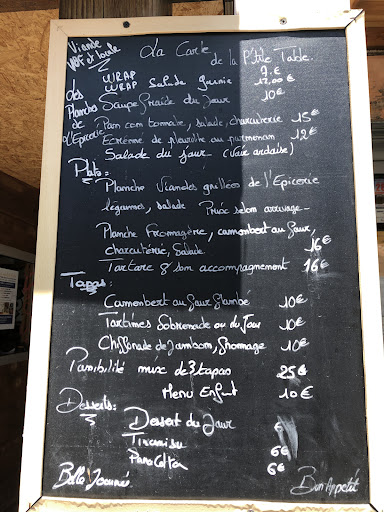 Viande
VBF et locale
La Carte
de la P'tite Table.
WRAP 9.€
WRAP Salade garnie 12,00 €
Soupe froide du jour 10€
Les Planches de l'Epicerie
Pan con tomate, salade, charcuterie 15€
Ecrémé de pleurotte au parmesan 12€
Salade du jour (voir ardoise)
Plats :
Planche Viandes grillées de l'Epicerie
légumes, salade Prix selon arrivage
Planche Fromagerie, camembert au four,
charcuterie, Salade 16€
Tartare & son accompagnement 16€
Tapas :
Camembert au four flambé 10€
Tartines Sobrenade ou du Jour 10€
Chiffonade de jambom, fromage 10€
Possibilité mix de 3 tapas 25€
Menu Enfant 10€
Desserts :
Dessert du Jour €
Tiramisu 6€
Pana Cotta 6€
Belle Journée
Bon Appetit